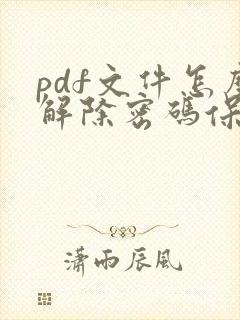 pdf文件怎
解除密碼保
瀟雨辰風